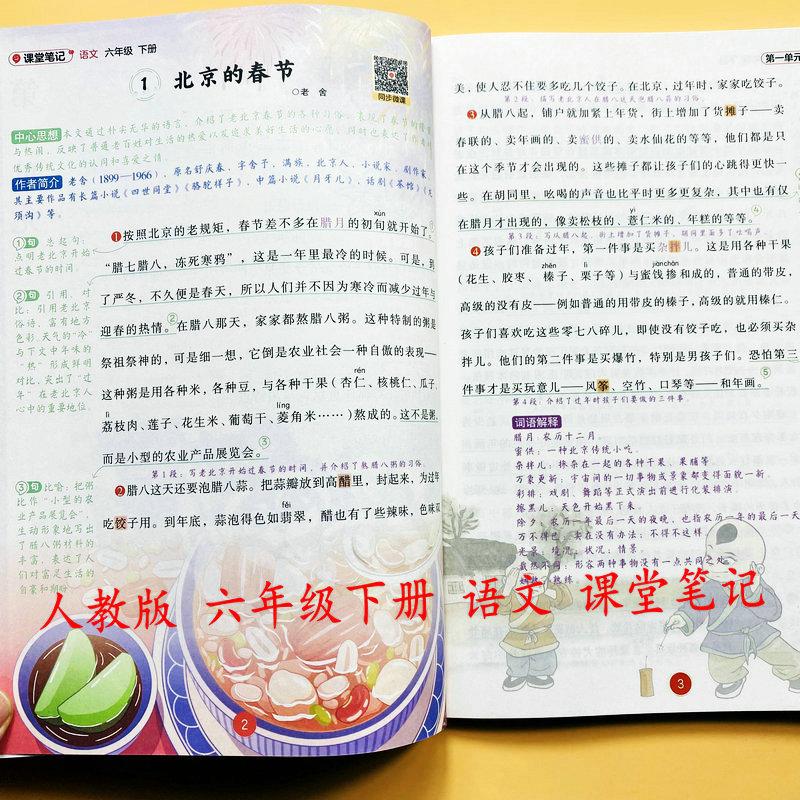 课堂笔记 语文 六年级 下册
1 北京的春节
○老 舍
同步微课
中心思想 本文通过朴实无华的语言，介绍了老北京春节的各种习俗，表现了春节的隆重
与热闹，反映了普通老百姓对生活的热爱以及追求美好生活的心愿，同时也表达了作者对
优秀传统文化的认同和喜爱之情。
作者简介 老舍（1899—1966），原名舒庆春，字舍予，满族，北京人，小说家、剧作家，
其主要作品有长篇小说《四世同堂》《骆驼祥子》，中篇小说《月牙儿》，话剧《茶馆》《龙
须沟》等。
①句 总起句：
点明老北京开始
过春节的时间。
②句 引用、对
比：引用老北京
俗语，富有地方
色彩。天气的“冷”
与下文中年味的
“热”形成鲜明
对比，突出了“过
年”在老北京人
心中的重要地位。
③句 比喻：把腊
粥比作“小型的农
业产品展览会”，
生动形象地写出
了腊八粥材料的
丰富，表达了人
们对富足生活的
自豪和期盼
xún
❶按照北京的老规矩，春节差不多在腊月的初旬就开始了。
“腊七腊八，冻死寒鸦”，这是一年里最冷的时候。可是，到
了严冬，不久便是春天，所以人们并不因为寒冷而减少过年与
迎春的热情。②在腊八那天，家家都熬腊八粥。这种特制的粥是
祭祖祭神的，可是细一想，它倒是农业社会一种自傲的表现——
rén
这种粥是用各种米，各种豆，与各种干果（杏仁、核桃仁、瓜子、
líng
荔枝肉、莲子、花生米、葡萄干、菱角米……）熬成的。这不是粥，
而是小型的农业产品展览会。③
第1段：写老北京开始过春节的时间，并介绍了熬腊八粥的习俗。
❷腊八这天还要泡腊八蒜。把蒜瓣放到高醋里，封起来，为过年
jiǎo
吃饺子用。到年底，蒜泡得色如翡翠，醋也有了些辣味，色味双
2
第一单元
美，使人忍不住要多吃几个饺子。在北京，过年时，家家吃饺子。
第2段：描写老北京人在腊八这天泡腊八蒜的习俗。
❸从腊八起，铺户就加紧上年货，街上增加了货摊子——卖
春联的、卖年画的、卖蜜供的、卖水仙花的等等，他们都是只
在这个季节才会出现的。这些摊子都让孩子们的心跳得更快一
些。在胡同里，吆喝的声音也比平时更多更复杂，其中也有仅
yì
在腊月才出现的，像卖松枝的、薏仁米的、年糕的等等。④
第3段：写从腊八起，街上增加了货摊子，胡同里面多了吆喝声。
❹孩子们准备过年，第一件事是买杂拌儿。这是用各种干果
zhēn lì jiànchān
（花生、胶枣、榛子、栗子等）与蜜饯掺和成的，普通的带皮，
高级的没有皮——例如普通的用带皮的榛子，高级的就用榛仁。
孩子们喜欢吃这些零七八碎儿，即使没有饺子吃，也必须买杂
拌儿。他们的第二件事是买爆竹，特别是男孩子们。恐怕第三
件事才是买玩意儿——风筝、空竹、口琴等——和年画。⑤
第4段：介绍了过年时孩子们要做的三件事。
词语解释
腊月：农历十二月。
蜜供：一种北京传统小吃。
杂拌儿：掺杂在一起的各种干果、果脯等。
万象更新：宇宙间的一切事物或景象都变得面貌一新。
彩排：戏剧、舞蹈等正式演出前进行化装排演。
擦黑儿：天色开始黑下来。
除夕：农历一年最后一天的夜晚，也指农历一年的最后一天
万不得已：实在没有办法；不得不这样
光景：境况；状况；情景。
截然不同：形容两种事物没有一点共同之处
3
人教版 六年级下册 语文 课堂笔记